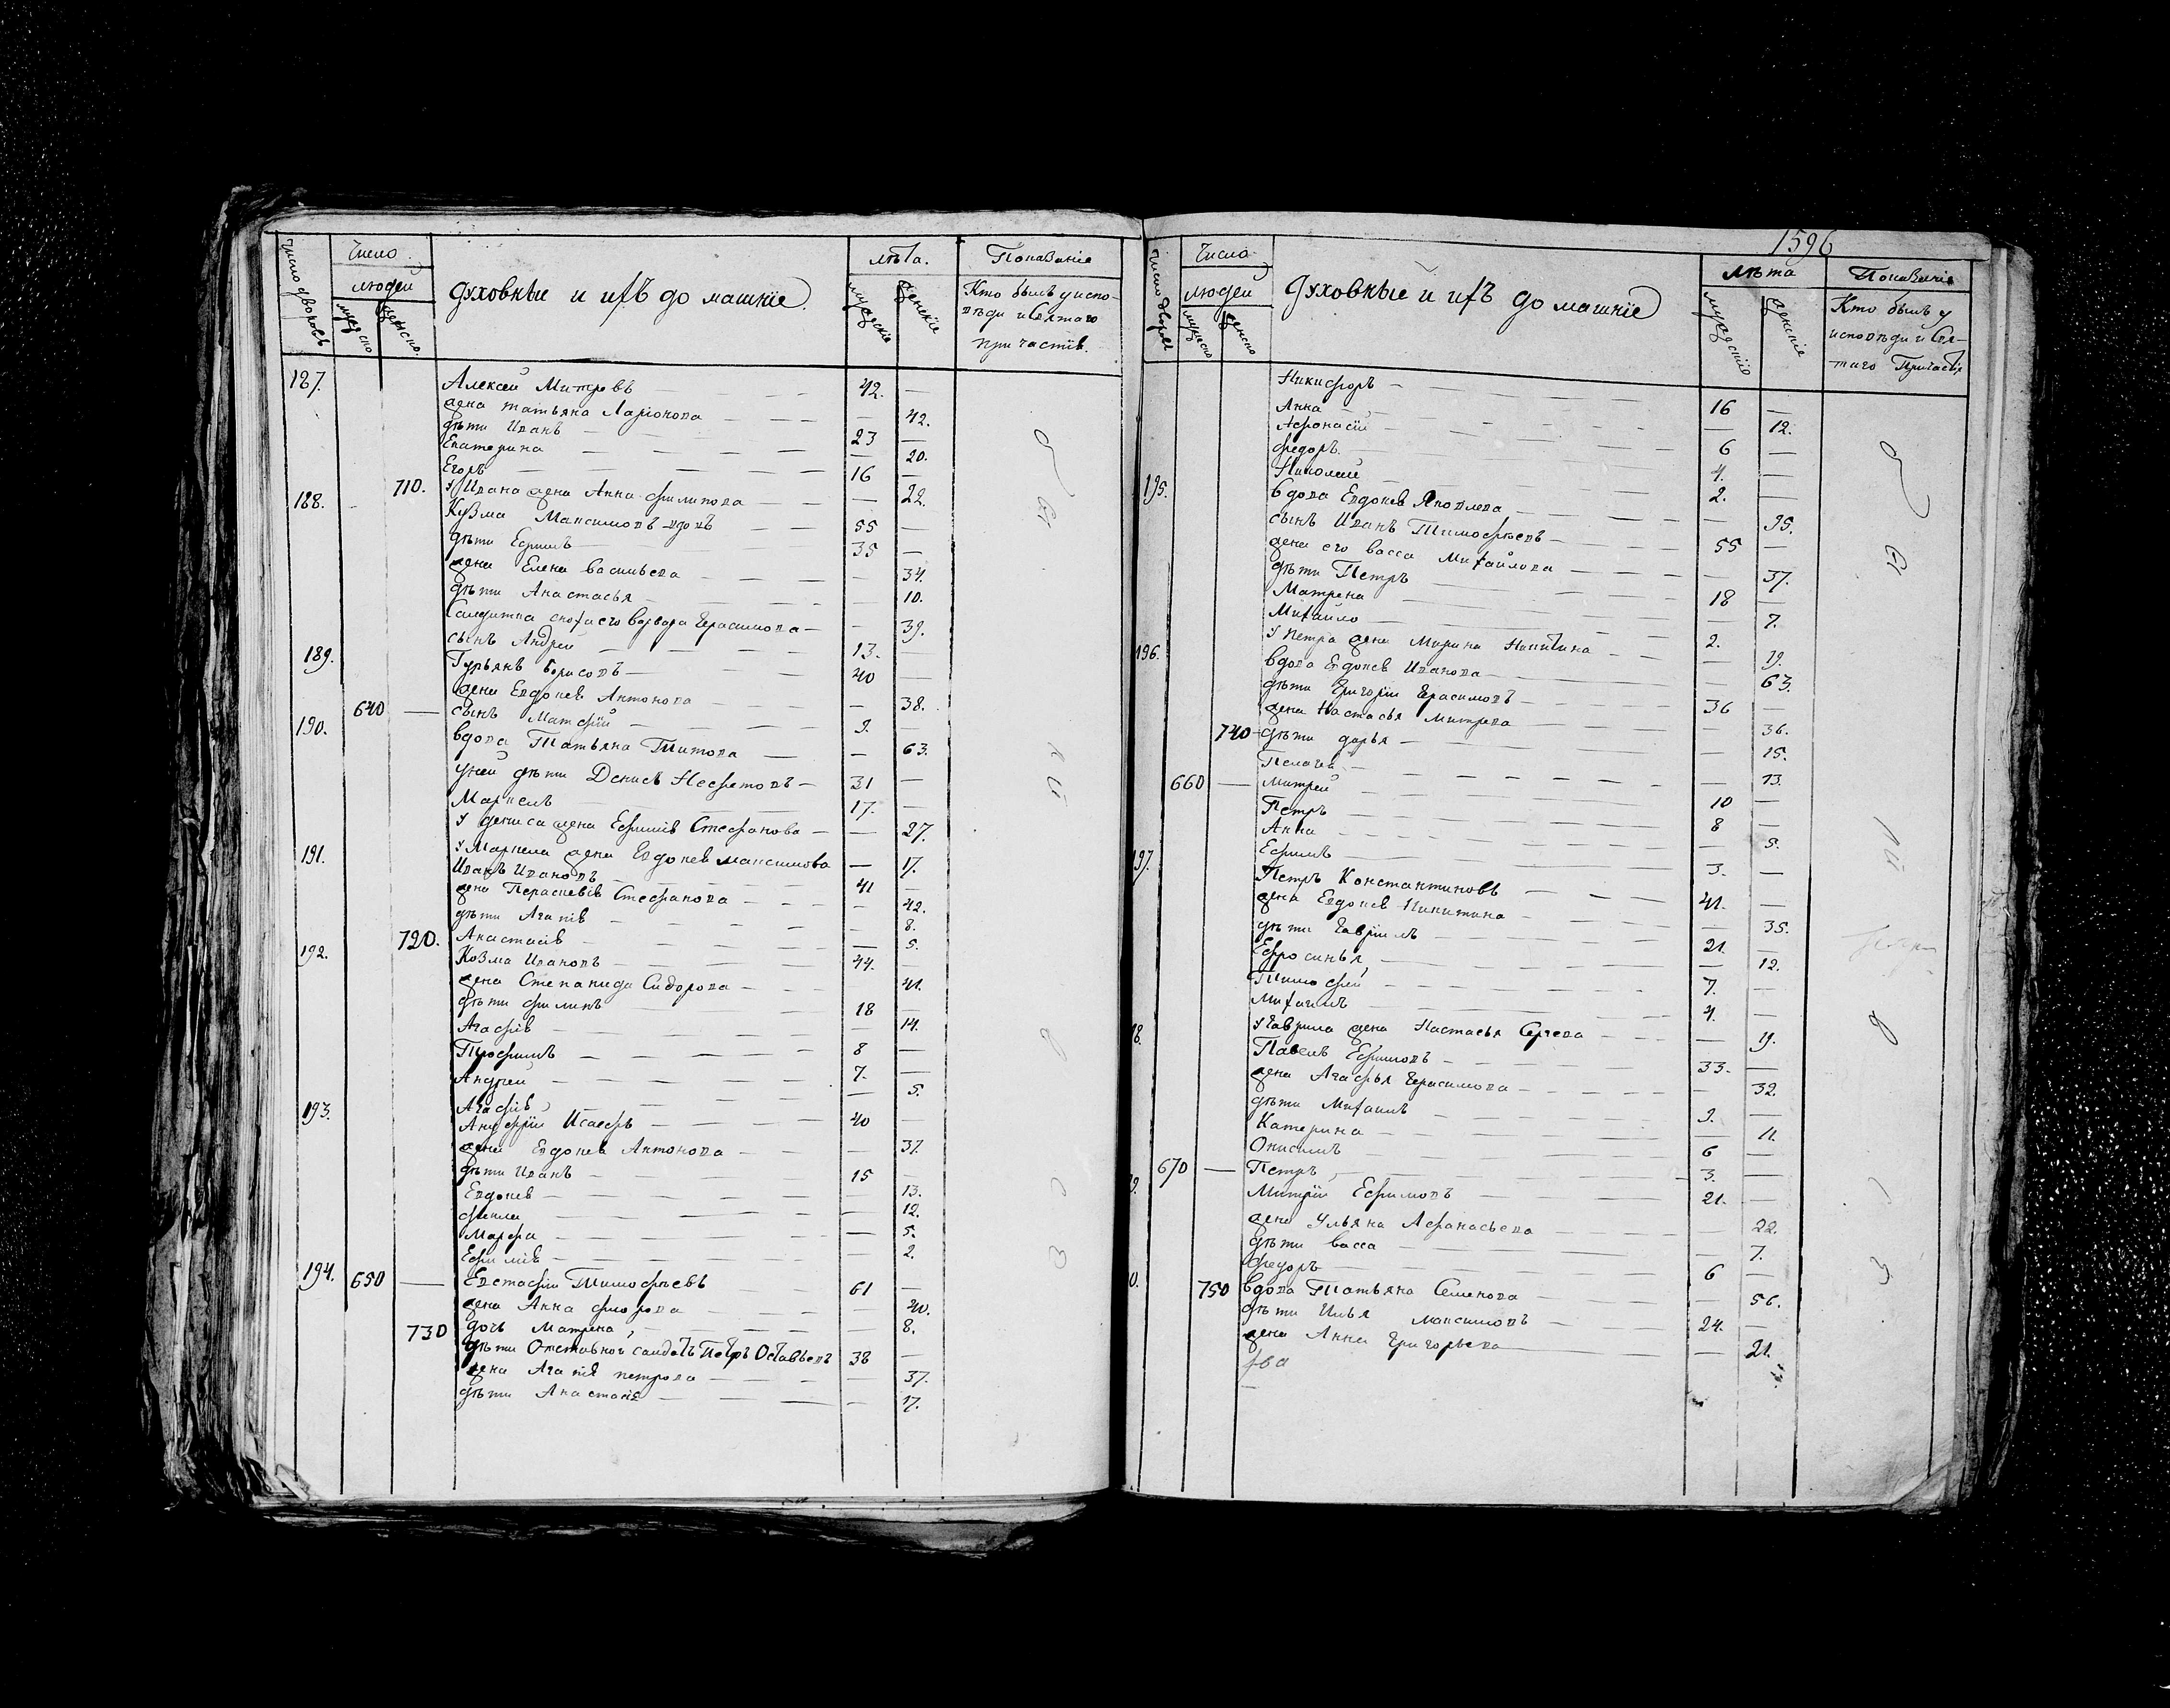 Число дворовъ
Число
людей
мужеско
женско.
духовные и ихъ до машніе.
лѣта.
мужескіе
женскіе
Показаніе
Кто былъ у испо-
вѣди и святаго
при частія.
187. Алексей Митревъ — 42. —
жена татьяна Ларіонова — — 42.
дѣти Иванъ — 23 —
Екатерина — — 20.
Егоръ — 16 —
710. У Ивана жена Анна филипова — — 22.
188. Кузма Максимовъ вдовъ — 55 —
дѣти Ефимъ — 35 —
жена Елена васильева — — 34.
дѣти Анастасья — 10.
Салдатка сноха его варвара Герасимова — — 39.
сынъ Андрей — 13. —
189. Гурьянъ борисовъ — 40 —
жена Евдокея Антонова — — 38.
640 — сынъ Матфій — 9. —
190. вдова Татьяна Титова — — 63.
У ней дѣти Денисъ Нефетовъ — 31 —
Маркелъ 17. —
У дениса жена Ефимія Стефанова — — 27.
У Маркела жена Евдокея максимова — 17.
191. Иванъ Ивановъ — 41 —
жена Параскевія Стефанова — — 42.
дѣти Агапія — — 8.
720. Анастасія — — 5.
192. Козма Ивановъ — 44. —
жена Степанида Сидорова — — 41.
дѣти филипъ 18 —
Агафія — — 14.
Трофимъ — 8 —
Андрей — 7. —
Агафія — — 5.
193. Ануфрій Исаевъ — 40 —
жена Евдокея Антонова — — 37.
дѣти Иванъ — 15
Евдокея — 13.
фекла — — 12.
Марфа — — 5.
Ефимія — 2.
194. 650 — Евстафій Тимофѣевъ 61 —
жена Анна фиорова — — 40.
730 дочь Матрена — — 8.
дѣти Отставной салдатъ Петръ Оставьевъ 38 —
жена Агапія петрова — — 37.
дѣти Анастасія — — 17.
1596
Число дворовъ
Число
людей
мужеско
женско
духовные и ихъ до машніе
лѣта
мужескіе
женскіе
Показаніе
Кто былъ у
исповѣди и свя-
таго Причастія
Никифоръ — 16 —
Анна — — 12.
Афонасій — 6 —
федоръ. 4. —
Николай — 2. —
195. вдова Евдокея Яковлева — — 95.
сынъ Иванъ Тимофѣевъ — 55 —
жена его васса Михайлова — — 37.
дѣти Петръ — 18 —
Матрена — — 7.
Михайло — 2.
У петра жена Марина Никитина — — 19.
196. вдова Евдокея Иванова — 63.
дѣти Григорій Герасимовъ — 36 —
жена Настасья Митрева — — 36.
740 — дѣти дарья — — 15.
Пелагея — — 13.
660 — Митрей — 10 —
Петръ 8 —
Анна — — 5.
Ефимъ — 3. —
197. Петръ Константиновъ — 41. —
жена Евдокея Никитина — 35.
дѣти Гавріилъ — 21. —
Ефросинья — — 12.
Тимофей — 7. —
Михаилъ 4. —
У Гаврила жена Настасья Сергева — — 19.
8. Павелъ Ефимовъ — 33. —
жена Агафья Герасимова — — 32.
дѣти Михаилъ — 9. —
Катерина — — 11.
Онисимъ 6 —
670 — Петръ — 3. —
9. Митрій Ефимовъ — 21. —
жена Ульяна Афанасьева — 22.
дѣти васса — — 7.
Федоръ 6 —
0. 750 вдова Татьяна Семенова — 56.
дѣти Илья максимовъ — 24. —
жена Анна Григорьева — — 21.